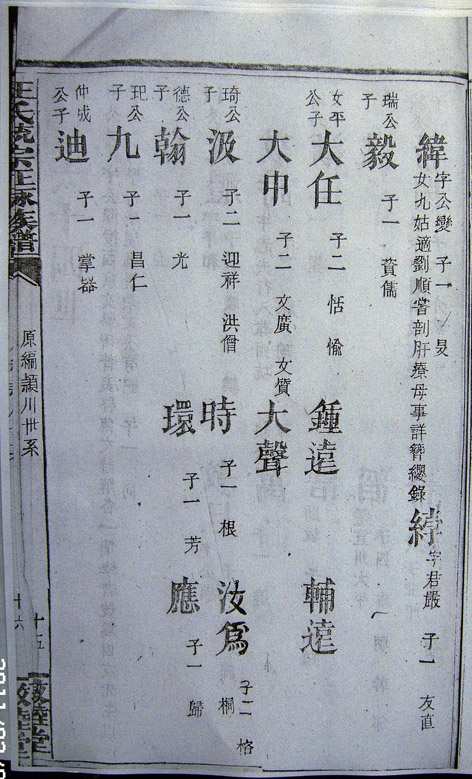 緯 字公變 子一 昊
女九姑適劉順嘗剖肝療母事詳簪纓錄
字君嚴 子一 友直
瑞公子 毅 子一 資儒
女平公子 大任 子二 恬 愉 鍾遠 輔遠
大中 子二 文廣 文質 大聲
琦公子 汲 子二 迎祥 洪僧 時 子一 根 汝爲 子二 桐 格
德公子 翰 子一 光 環 子一 芳 應 子一 歸
玘公子 九 子一 昌仁
仲成公子 迪 子一 掌器
汪氏統宗正脉族譜
原編潁川世系
十五
十六
睦堂